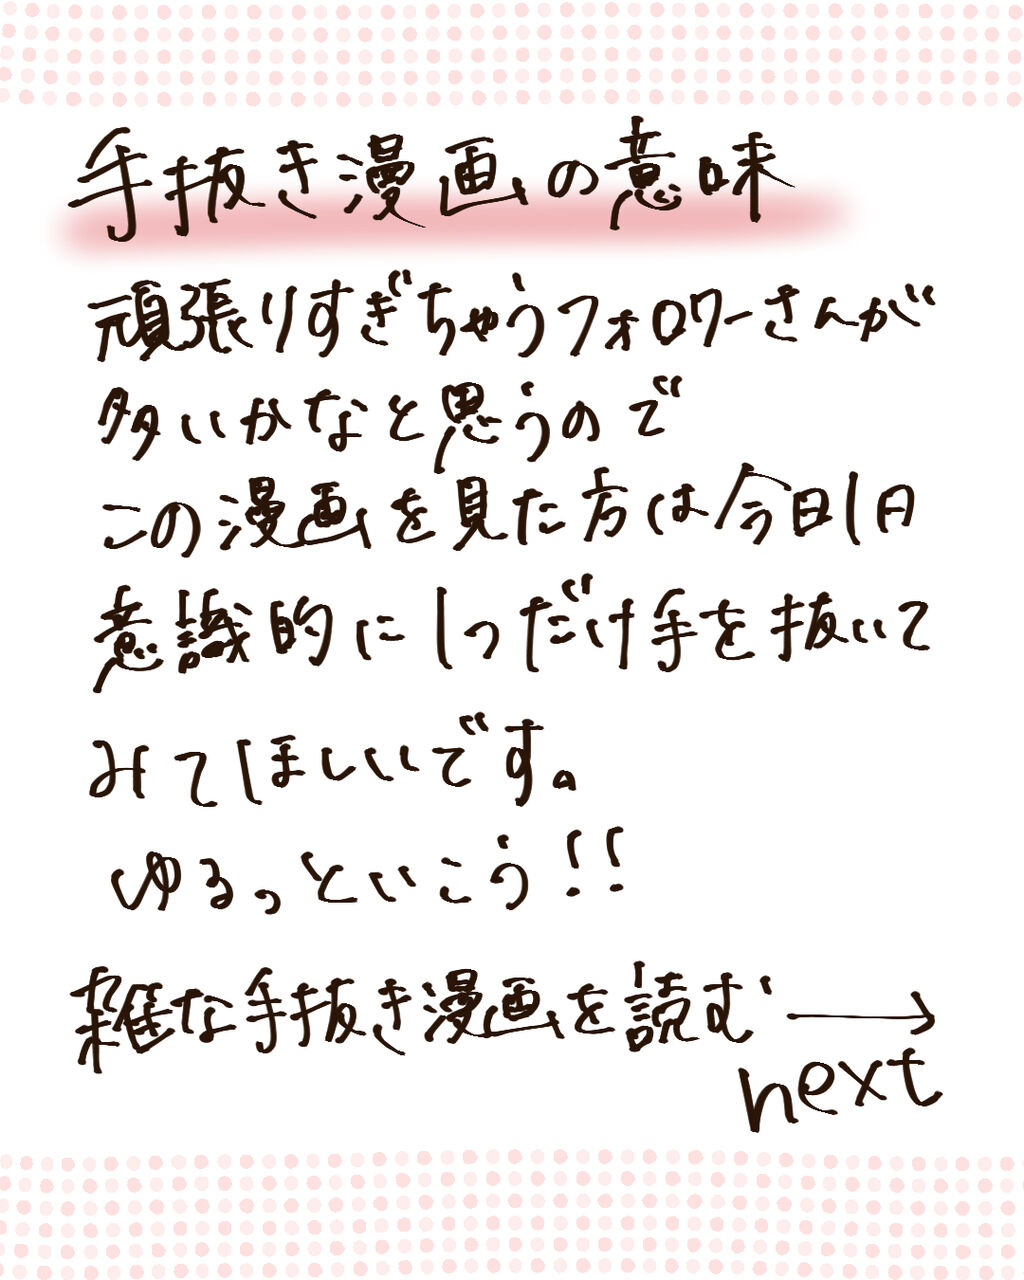 手抜き漫画の意味
頑張りすぎちゃうフォロワーさんが
多いかなと思うので
この漫画を見た方は今日1日
意識的に1つだけ手を抜いて
みてほしいです。
ゆるっといこう!!
雑な手抜き漫画を読む →
next